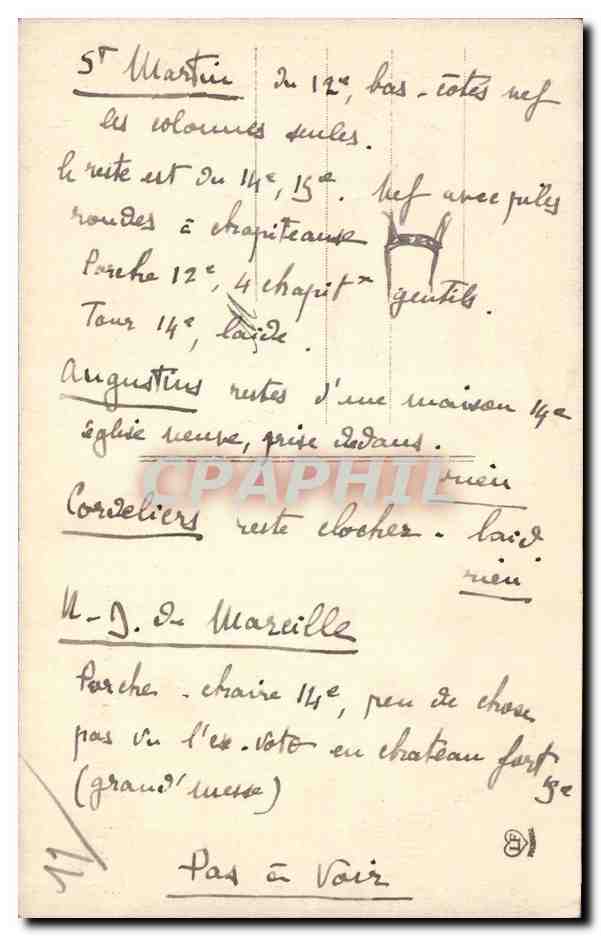 St Martin du 12e, bas-côtés nef
les colonnes seules.
le reste est du 14e, 15e. Nef avec piles
rondes à chapiteaux
Porche 12e, 4 chapitx gentils.
Tour 14e, laide.
Augustins restes d'une maison 14e
église neuve, prise dedans.
rien
CPARAMA
Cordeliers reste clocher - laid.
rien
N-D. de Mareille
Porche - chaire 14e, peu de chose
pas vu l'ex-voto en chateau fort
15e
(grand'messe)
11/
LF
Pas à voir